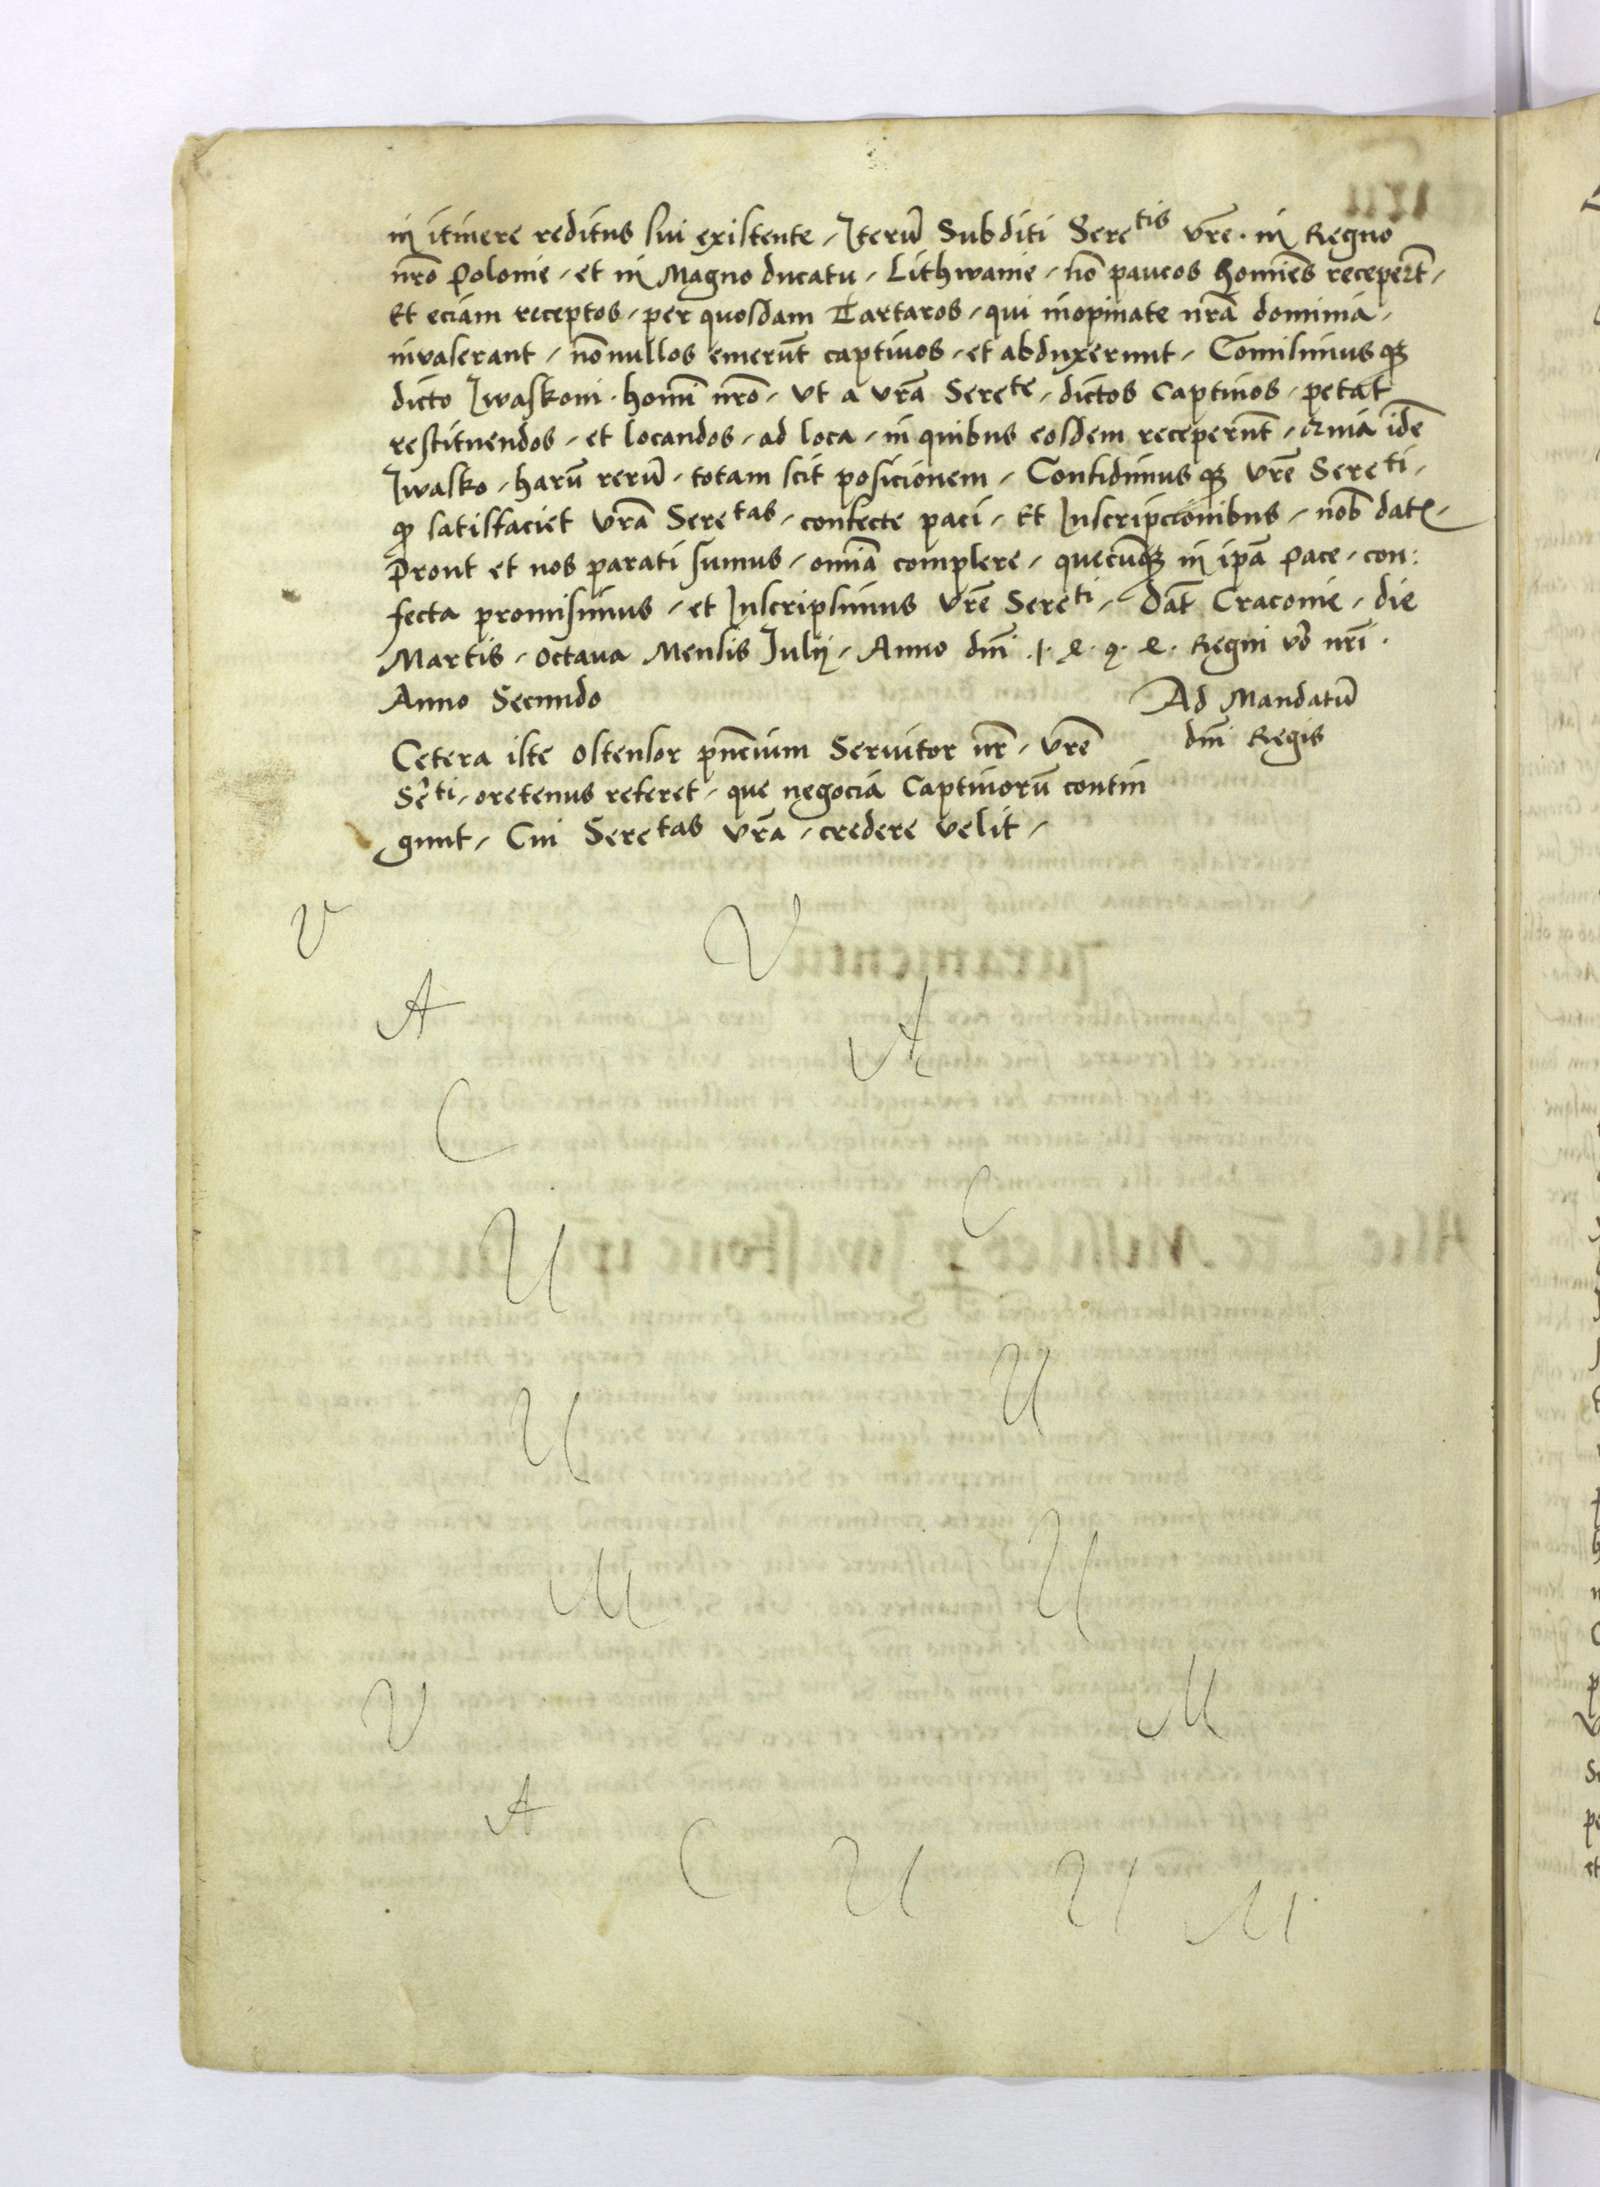 in itinere reditus sui existente, Iterū Subditi Sereᵗⁱˢ vrē. in Regno
nrō Polonie, et in Magno ducatu, Lithwanie, nō paucos hoīes receper̄t,
Et eciam receptos, per quosdam Tartaros, qui inopinate nrā dominia,
invaserant, nōnullos emerūt captivos, et abduxerunt, Comisimus qꝫ
dicto Iwaskoni. homī nrō, vt a vrā Sereᵗᵉ, dictos Captivos, petat
restituendos, et locandos, ad loca, in quibus eosdem receperūt, idē
Iwasko, harū rerū, totam scit posicionem, Confidimus qꝫ vrē Sereᵗⁱ,
qꝫ satisfaciet vrā Sereᵗᵃˢ, confecte paci, Et Inscripcionibus, nob̄ datꝭ,
Prout et nos parati sumus, omīa complere, quecūqꝫ in ipā Pace, con:
fecta promisimus, et Inscripsimus vrē Sereᵗⁱ, Dat̄ Cracovie, die
Martis, octava Mensis Julij, Anno dnī Regni vō nrī.
Anno Secundo
Ad Mandatū
dnī Regis
Cetera iste ostensor pn̄cium Servitor nr̄, vrē
Sēᵗⁱ, oretenus referet, que negocia Captivorū contin
gunt, Cui Sereᵗᵃˢ vrā, credere velit,
V V
A A
C
C
U
U
U
U
M
M
V
A
C U U M